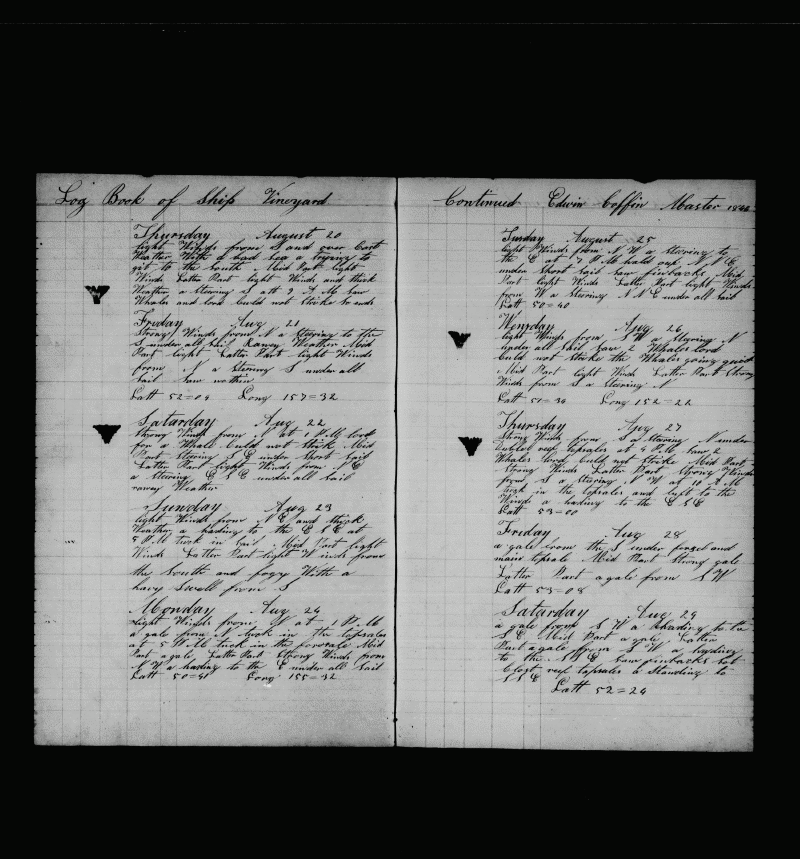 Log Book of Ship Vineyard
Thursday August 20
light Winds from S and over Cast
Weather With a bad Sea a trying to
git to the South Mid Part light
Winds Latter Part light Winds and thick
Weather a Stering S att 9 A M Saw
Whales and lord Could not Strike So ends
Friday Aug 21
Strong Winds from N a Stering to the
S under all Sail Raney Weather Mid
Part light Latter Part light Winds
from N a Stering S under all
Sail Saw nothin
Latt 52=04 Long 157=32
Saturday Aug 22
Strong Winds from N at 1 P.M lord
for a Whale Could not Strik Mid
Part Stering S E under Short Sail
Latter Part light Winds from N E
a Stering E S E under all Sail
raney Weather
Sunday Aug 23
light Winds from N E and thick
Weather a hading to the E S E at
5 P M tuck in Sail Mid Part light
Winds Latter Part light Winds from
the South and fogy With a
havy Swell from S
Monday Aug 24
light Winds from N at 1 P.M
a gale from N tuck in the topsales
at 5 P M tuck in the foresale Mid
Part a gale Latter Part Strong Winds from
N W a hading to the E under all Sail
Latt 50=51 Long 155=32
Continued Edwin Coffin Master
Tusday August 25
light Winds from N W a Stering to
the E at 7 P.M hald up N N E
under Short Sail Saw finbacks Mid
Part light Winds Latter Part light Winds
from W a Stering N N E under all Sail
Latt 50=40
Wensday Aug 26
light Winds from S W a Stering N
under all Sail Saw 2 Whales lord
Could not Strike the Whales going quick
Mid Part light Winds Latter Part Strong
Winds from S a Stering N
Latt 51=34 Long 152=22
Thursday Aug 27
Strong Winds from S a Stering N under
Dubbel reef topsales at 4 P M Saw 2
Whales lord Could not Strike Mid Part
Strong Winds Latter Part Strong Winds
from S a Stering N W at 10 A M
tuck in the topsales and luft to the
Winds a hading to the E S E
Latt 53=00
Friday Aug 28
a gale from the S under foresel and
main topsale Mid Part Strong gale
Latter Part a gale from S W
Latt 53=08
Saturday Aug 29
a gale from S W a hading to the
S E Mid Part a gale Latter
Part a gale from S W a hading
to the S S E Saw finbacks but
Close reef topsales a Standing to
S S E Latt 52=24